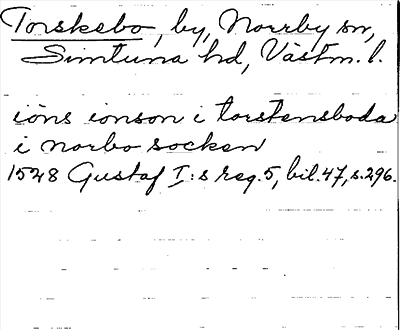 Torskebo, by, Norrby sn,
Simtuna hd, Västm. l.
iöns ionson i torstensboda
i norbo socken
1528 Gustaf I:s reg. 5, bil. 47, s. 296.